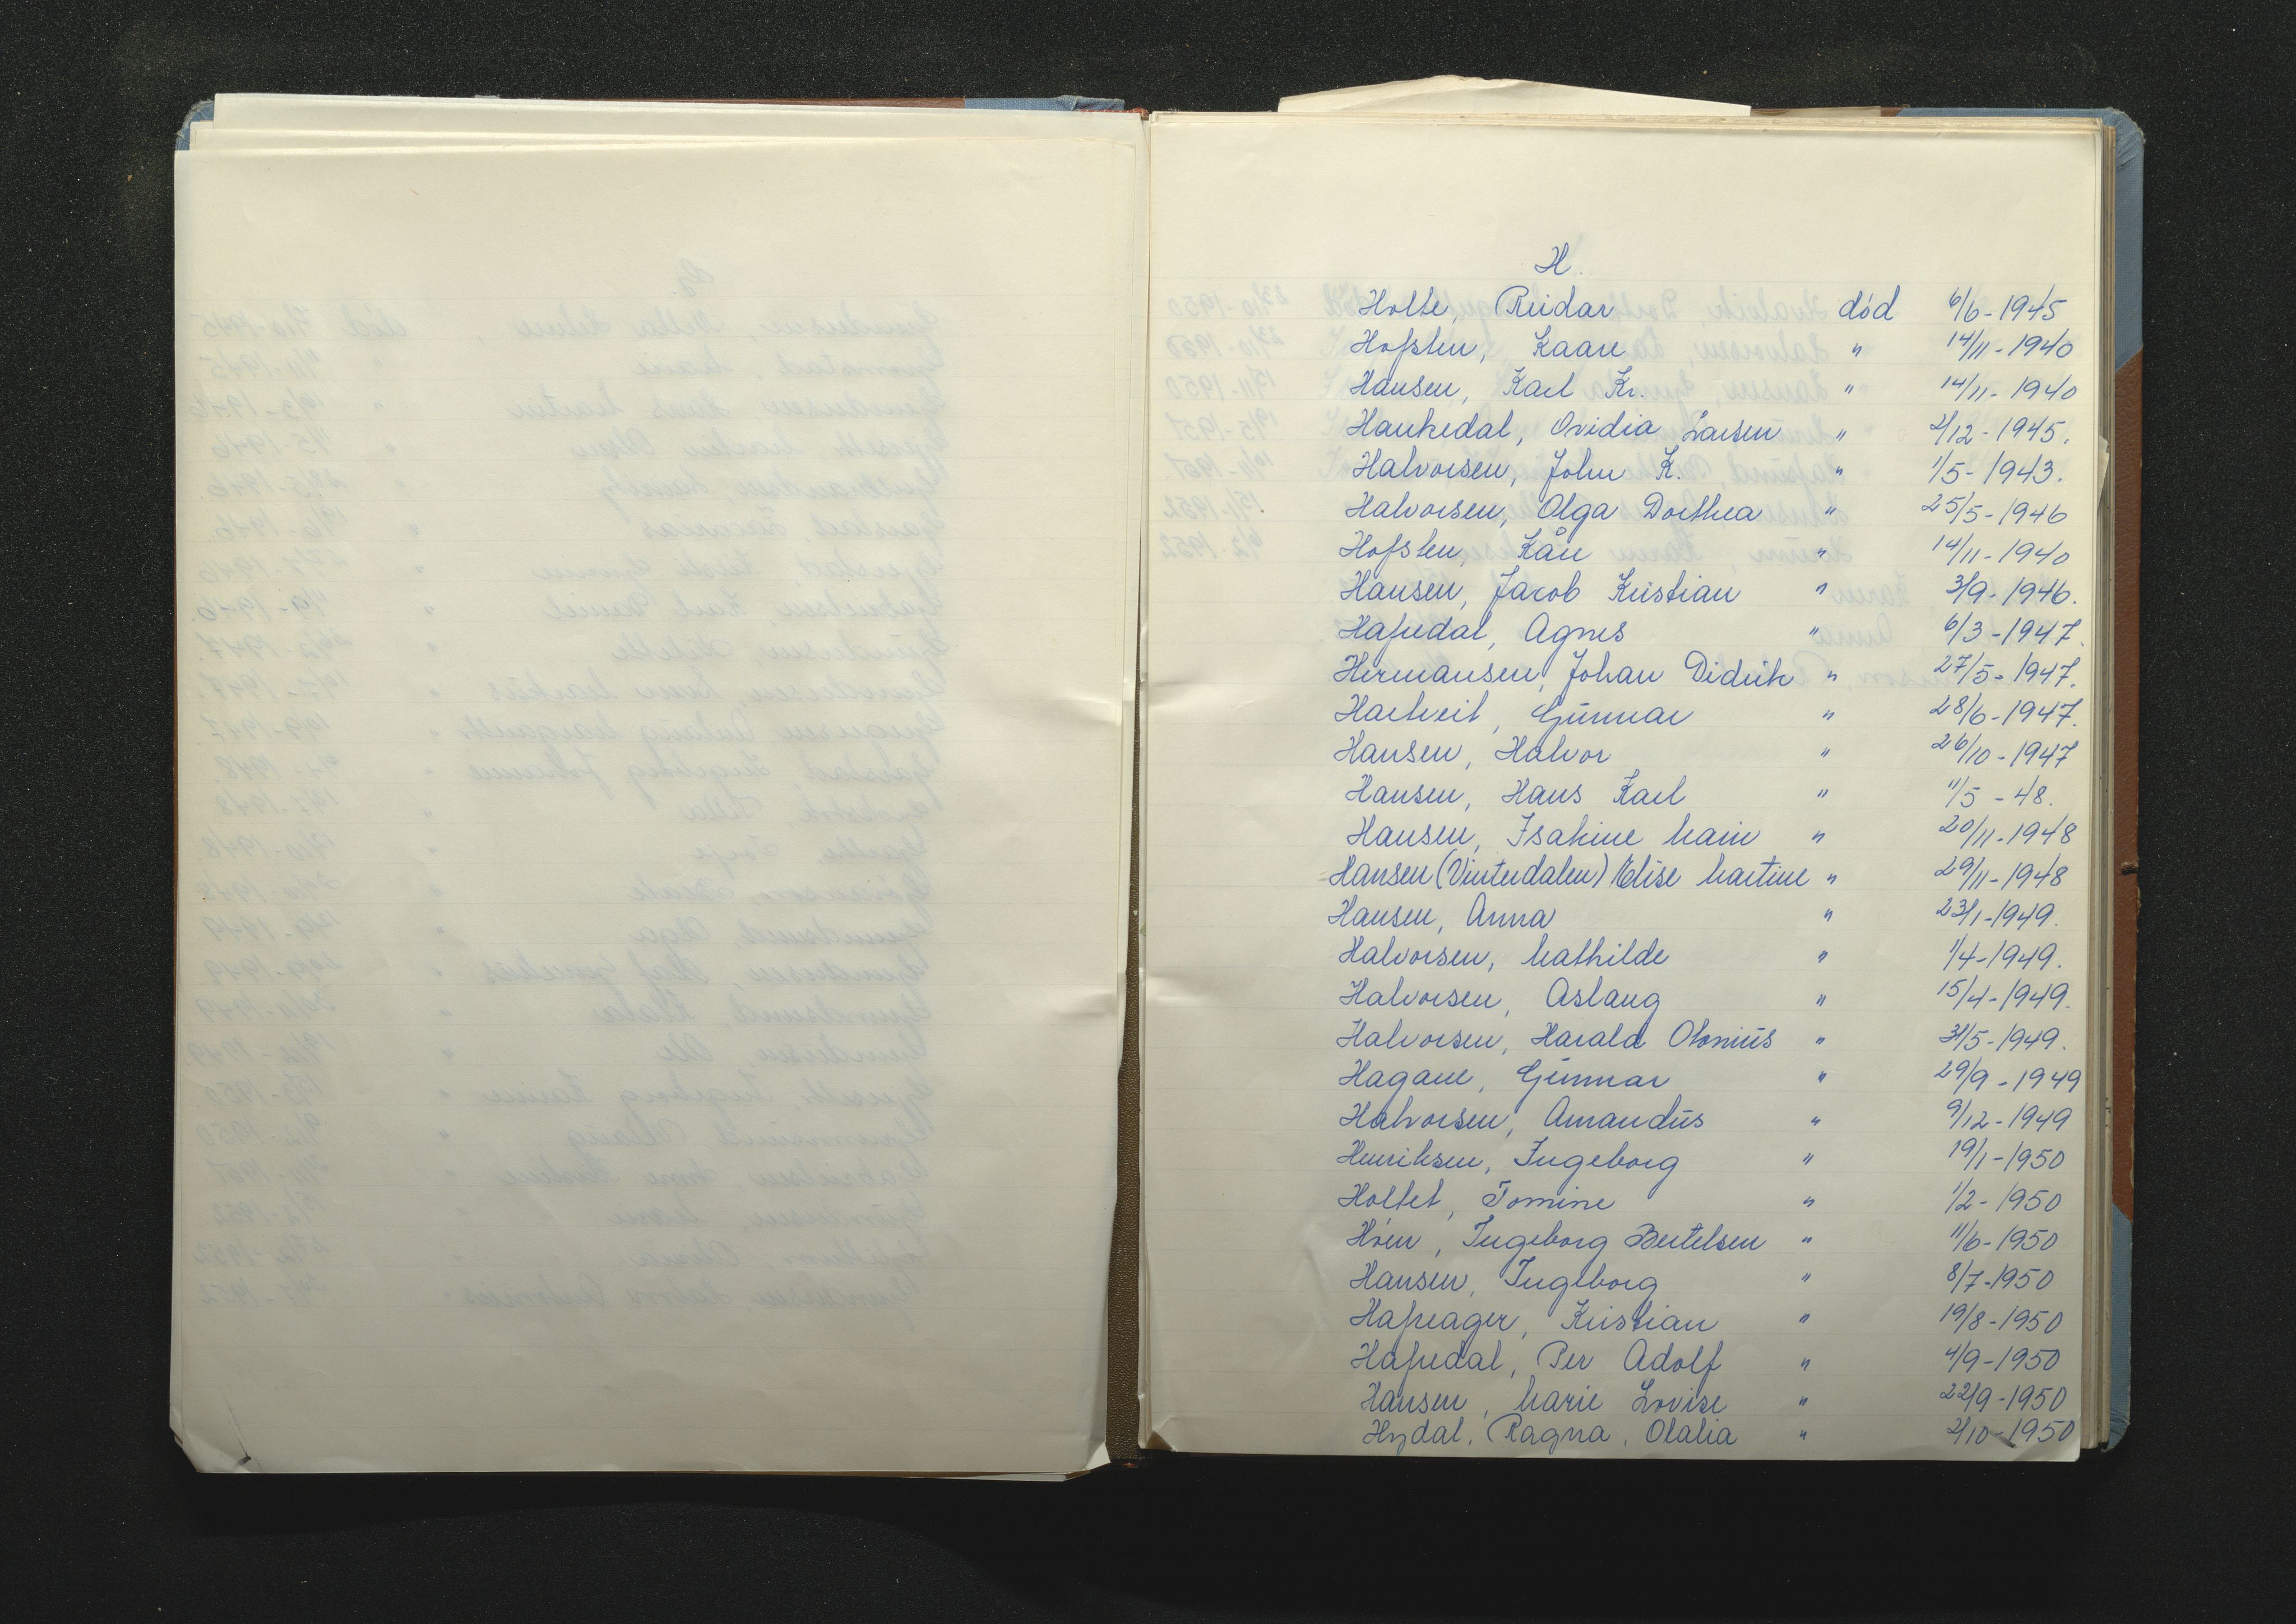 H.
Holte, Reidar død 6/6-1945
Hofsten, Kaare " 14/11-1940
Hansen, Karl Kr. " 14/11-1940
Haukedal, Ovidia Larsen " 2/12-1945.
Halvorsen, John K. " 1/5-1943.
Halvorsen, Olga Dorthea " 25/5-1946
Hofsten, Kåre " 14/11-1940
Hansen, Jacob Kristian " 3/9-1946.
Hafredal, Agnes " 6/3-1947.
Hermansen, Johan Didrik " 27/5-1947.
Hartveit, Gunnar " 28/6-1947.
Hansen, Halvor " 26/10-1947
Hansen, Hans Karl " 11/5-48.
Hansen, Isakine Marie " 20/11-1948
Hansen (Vinterdalen) Elise Martine " 29/11-1948
Hansen, Anna " 23/1-1949.
Halvorsen, Mathilde " 1/4-1949.
Halvorsen, Aslaug " 15/4-1949.
Halvorsen, Harald Olonius " 31/5-1949.
Hagane, Gunnar " 29/9-1949
Halvorsen, Amandus " 9/12-1949
Henriksen, Ingeborg " 19/1-1950
Holtet, Tomine " 1/2-1950
Hoen, Ingeborg Bertelsen " 11/6-1950
Hansen, Ingeborg " 8/7-1950
Hafreager, Kristian " 19/8-1950
Hafredal, Per Adolf " 4/9-1950
Hansen, Marie Lovise " 22/9-1950
Hydal, Ragna, Olalia " 2/10-1950